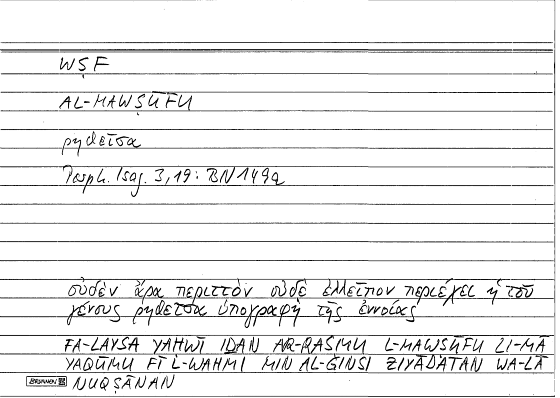 WṢF
AL-MAWṢŪFU
ῥηθεῖσα
Porph. Isag. 3,19: BN 149a
οὐδὲν ἄρα περιττὸν οὐδὲ ἐλλεῖπον περιέχει ἡ τοῦ
γένους ῥηθεῖσα ὑπογραφὴ τῆς ἐννοίας
FA-LAYSA YAḤWĪ IḎAN AR-RASMU L-MAWṢŪFU LI-MĀ
YAQŪMU FĪ L-WAHMI MIN AL-ĞINSI ZIYĀDATAN WA-LĀ
NUQṢĀNAN
BRUNNEN